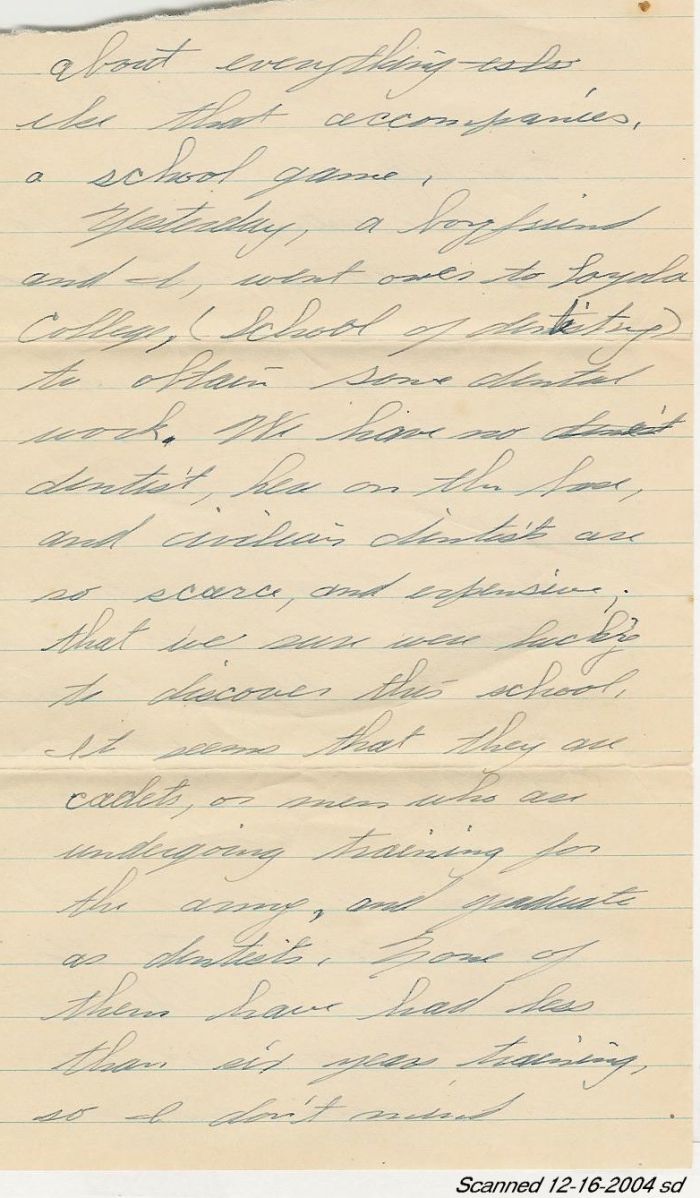 about everything else
else that accompanies,
a school game.
Yesterday, a boyfriend
and I, went over to Loyola
College, (School of dentistry)
to obtain some dental
work. We have no
dentist, here on the base,
and civilian dentist are
so scarce, and expensive,
that we sure were lucky
to discover this school.
It seems that they are
cadets, or men who are
undergoing training for
the army, and graduate
as dentists. None of
them have had less
than six years training,
so I don't mind
Scanned 12-16-2004 sd